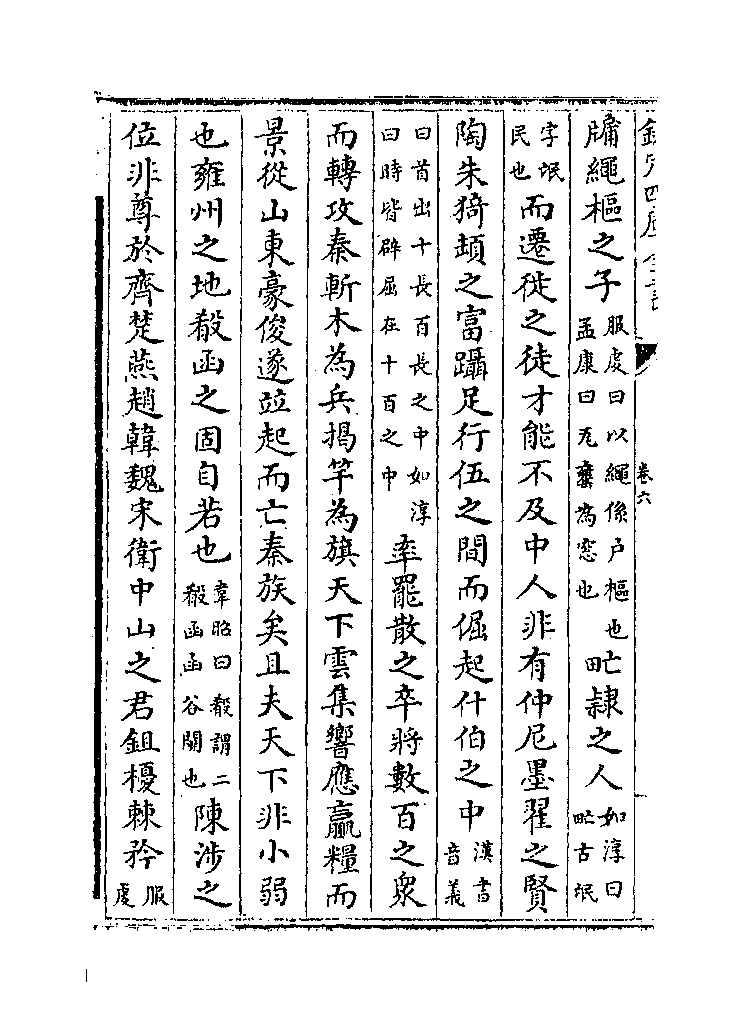 欽定四庫全書
卷六
牖繩樞之子服虔曰以繩係户樞也孟康曰瓦甕為窓也甿隸之人如淳曰甿古氓
字氓民也而遷徙之徒才能不及中人非有仲尼墨翟之賢
陶朱猗頓之富躡足行伍之間而倔起什伯之中漢書音義
曰首出十長百長之中如淳曰時皆辟屈在十百之中率罷散之卒將數百之衆
而轉攻秦斬木為兵揭竿為旗天下雲集響應贏糧而
景從山東豪俊遂竝起而亡秦族矣且夫天下非小弱
也雍州之地殽函之固自若也韋昭曰殽謂二殽函函谷關也陳涉之
位非尊於齊楚燕趙韓魏宋衛中山之君鉏櫌棘矜服虔